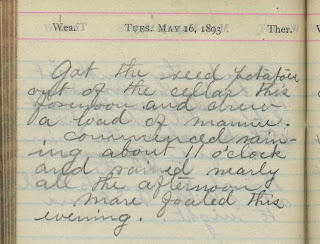 Wea. TUES. MAY 16, 1893 Ther.
Got the seed potatoes
out of the cellar this
forenoon and drew
a load of manure.
Commenced rain-
ing about 11 o'clock
and rained nearly
all the afternoon
Mare foaled this
evening.